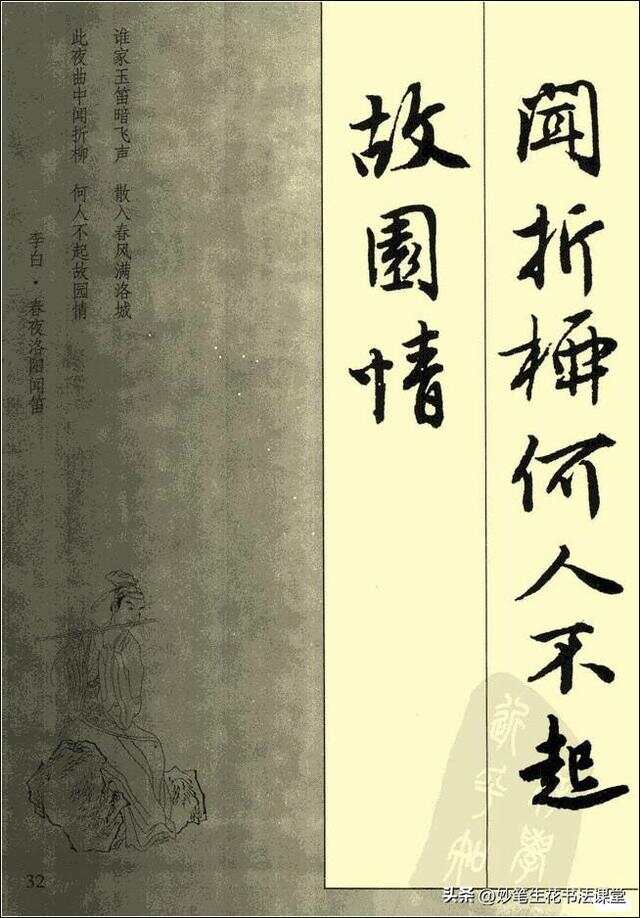 聞折柳何人不起
故園情
谁家玉笛暗飞声 散入春风满洛城
此夜曲中闻折柳 何人不起故园情
李白·春夜洛阳闻笛
32
头条 @妙笔生花书法课堂